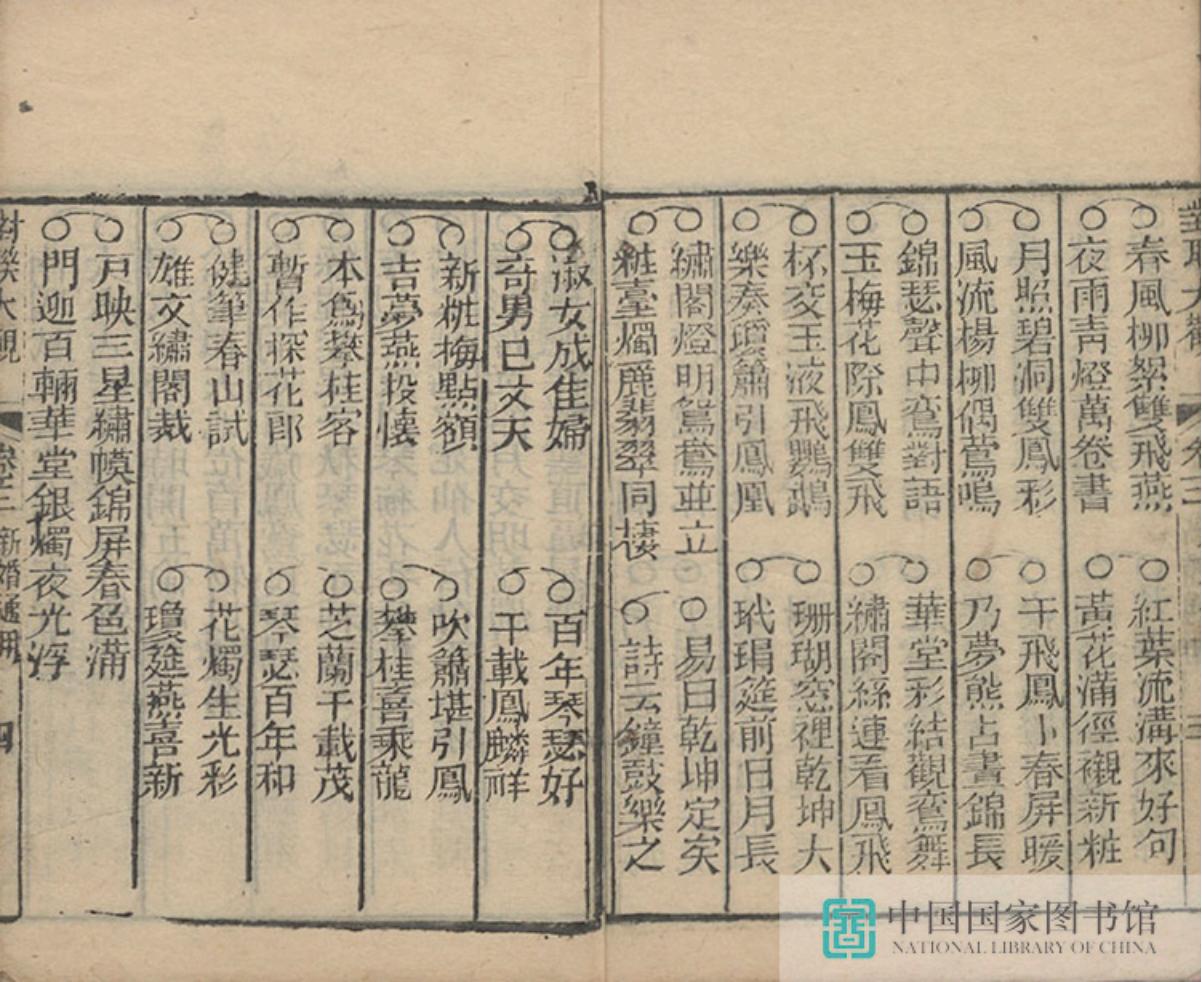 春風柳絮雙飛燕
夜雨青燈萬卷書
紅葉流溝來好句
黃花滿徑襯新粧
月照碧洞雙鳳彩
風流楊柳偶鶯鳴
于飛鳳卜春屏暖
乃夢熊占晝錦長
錦瑟聲中鸞對語
玉梅花際鳳雙飛
華堂彩結觀鸞舞
繡閣絲連看鳳飛
杯交玉液飛鸚鵡
樂奏瓊簫引鳳凰
珊瑚窓裡乾坤大
玳瑁筵前日月長
繡閣燈明鴛鴦並立
粧臺燭麗翡翠同棲
易曰乾坤定矣
詩云鐘鼓樂之
淑女成佳婦
奇男已丈夫
百年琴瑟好
千載鳳麟祥
新粧梅點額
吉夢燕投懷
吹簫堪引鳳
攀桂喜乘龍
本為攀桂客
暫作探花郎
芝蘭千載茂
琴瑟百年和
健筆春山試
雄文繡閣裁
花燭生光彩
瓊筵燕喜新
戶映三星繡幙錦屏春色滿
門迎百輛華堂銀燭夜光浮
卷三 新婚通用
四
中国国家图书馆
NATIONAL LIBRARY OF CHINA